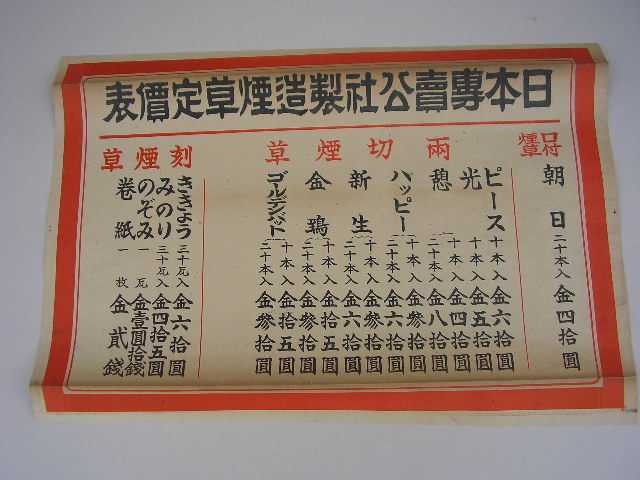 日本專賣公社製造煙草定價表
口付煙草
朝日 二十本入 金四拾圓
兩切煙草
ピース 十本入 金六拾圓
光 十本入 金五拾圓
憩 十本入 金四拾圓
二十本入 金八拾圓
ハッピー 十本入 金參拾圓
二十本入 金六拾圓
新生 十本入 金參拾圓
二十本入 金六拾圓
金鵄 十本入 金拾五圓
二十本入 金參拾圓
ゴールデンバット 十本入 金拾五圓
二十本入 金參拾圓
刻煙草
ききょう 三十瓦入 金六拾圓
みのり 三十瓦入 金四拾五圓
のぞみ 一瓦 金壹圓拾錢
巻紙 一枚 金貳錢